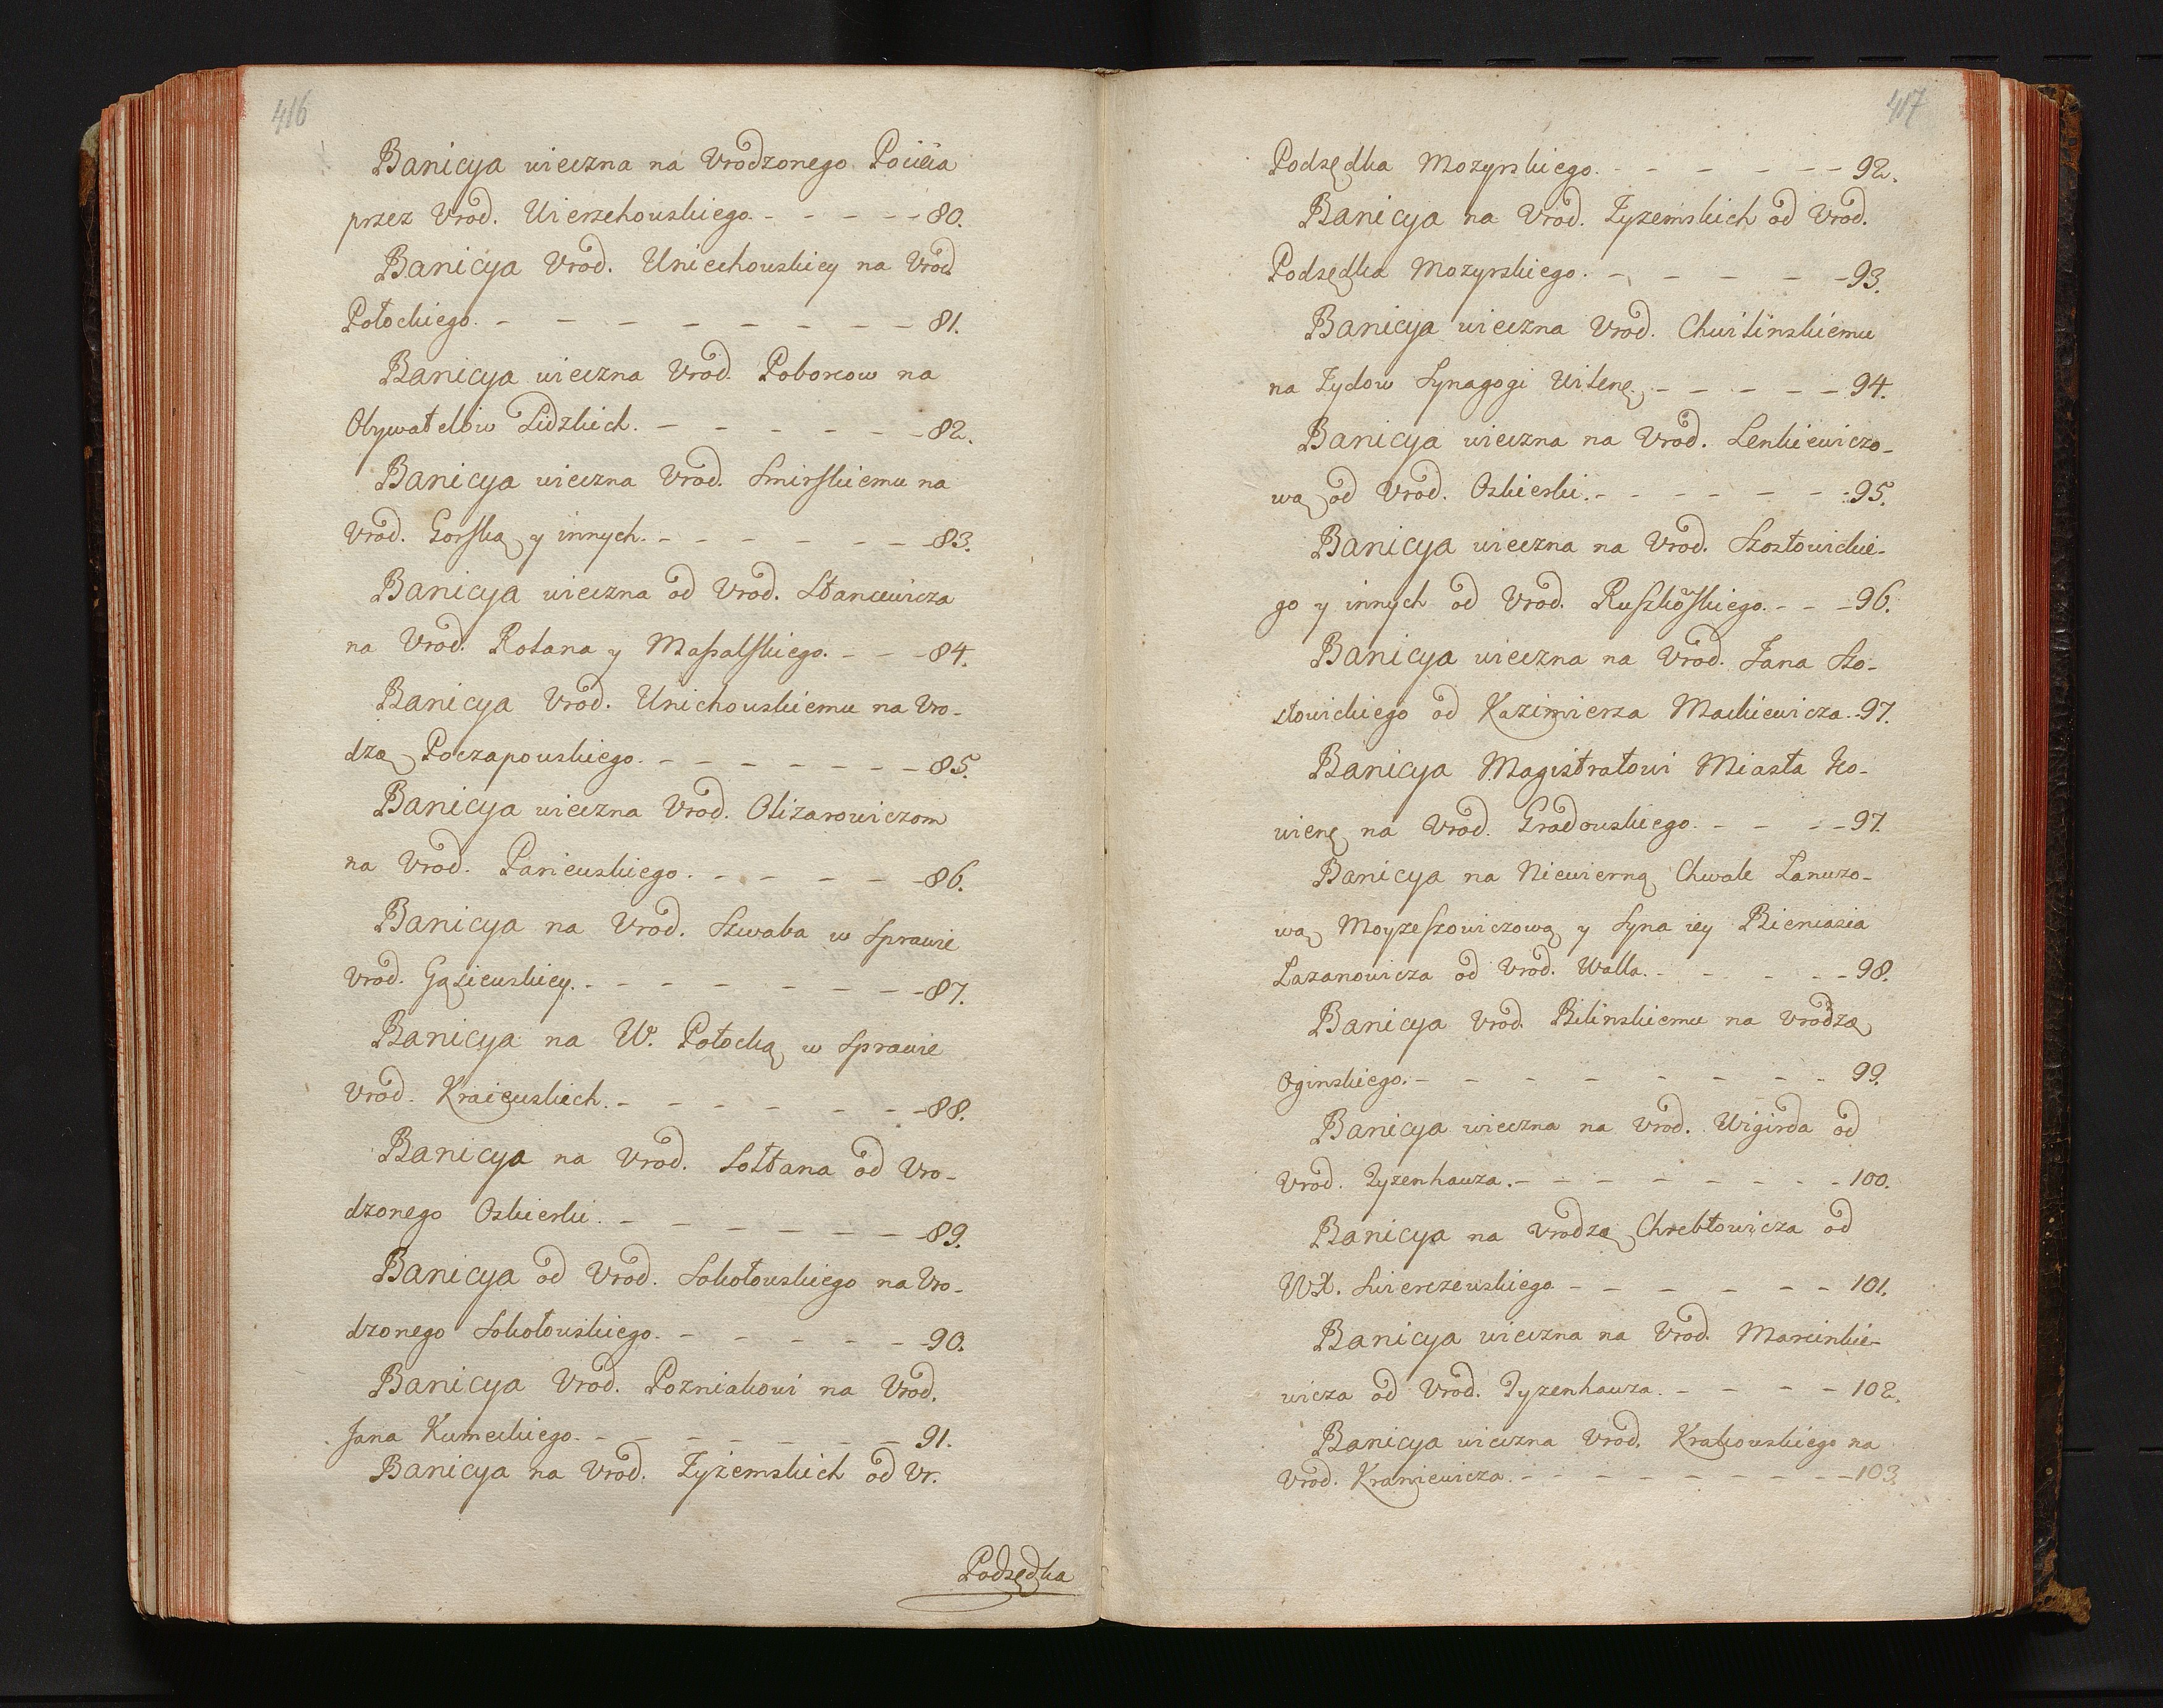 416
Banicya wieczna na Vrodzonego Pocieia
przez Vrod. Wierzchowskiego. - - - - - 80.
Banicya Vrod. Uniechowskiey na Vrod
Potockiego. - - - - - - - - 81.
Banicya wieczna Vrod. Poborcow na
Obywatelow Lidzkich. - - - - - - 82.
Banicya wieczna Vrod. Smirskiemu na
Vrod. Gorską y innych. - - - - - - - 83.
Banicya wieczna od Vrod. Stancewicza
na Vrod. Rotana y Massalskiego. - - - 84.
Banicya Vrod. Unichowskiemu na Vro-
dzą Poczapowskiego. - - - - - - - - 85.
Banicya wieczna Vrod. Olizarowiczom
na Vrod. Paniewskiego. - - - - - - 86.
Banicya na Vrod. Szwaba w Sprawie
Vrod. Gąsiewskiey. - - - - - - - - 87.
Banicya na W. Potocką w Sprawie
Vrod. Kraiewskich. - - - - - - - 88.
Banicya na Vrod. Sołtana od Vro-
dzonego Oskierki. - - - - - - - 89.
Banicya od Vrod. Sokołowskiego na Vro-
dzonego Sokołowskiego. - - - - - - 90.
Banicya Vrod. Pozniakowi na Vrod.
Jana Kumeckiego. - - - - - - - 91.
Banicya na Vrod. Zyzemskich od Vr.
Podsędka
417
Podsędka Mozyrskiego. - - - - - - 92.
Banicya na Vrod. Zyzemskich od Vrod.
Podsędka Mozyrskiego. - - - - - - 93.
Banicya wieczna Vrod. Chwilinskiemu
na Zydow Synagogi Wilenę - - - - - 94.
Banicya wieczna na Vrod. Lenkiewiczo-
wą od Vrod. Oskierki. - - - - - - - 95.
Banicya wieczna na Vrod. Szostowickie-
go y innych od Vrod. Ruszkowskiego. - - - 96.
Banicya wieczna na Vrod. Jana Szo-
stowickiego od Kazimierza Mackiewicza. - 97.
Banicya Magistratowi Miasta Ko-
wienę na Vrod. Gradowskiego. - - - - 97.
Banicya na Niewierną Chwale Lanuzo-
wą Moyzeszowiczową y Syna iey Bieniasia
Lazanowicza od Vrod. Walla. - - - - - 98.
Banicya Vrod. Bilinskiemu na Vrodzą
Oginskiego. - - - - - - - - 99.
Banicya wieczna na Vrod. Wigirda od
Vrod. Zyzenhauza. - - - - - - - - 100.
Banicya na Vrodzą Chrebtowicza od
WX. Swierczewskiego - - - - - - 101.
Banicya wieczna na Vrod. Marcinkie-
wicza od Vrod. Zyzenhauza. - - - - 102.
Banicya wieczna Vrod. Krakowskiego na
Vrod. Kraniewicza. - - - - - - - - - 103.